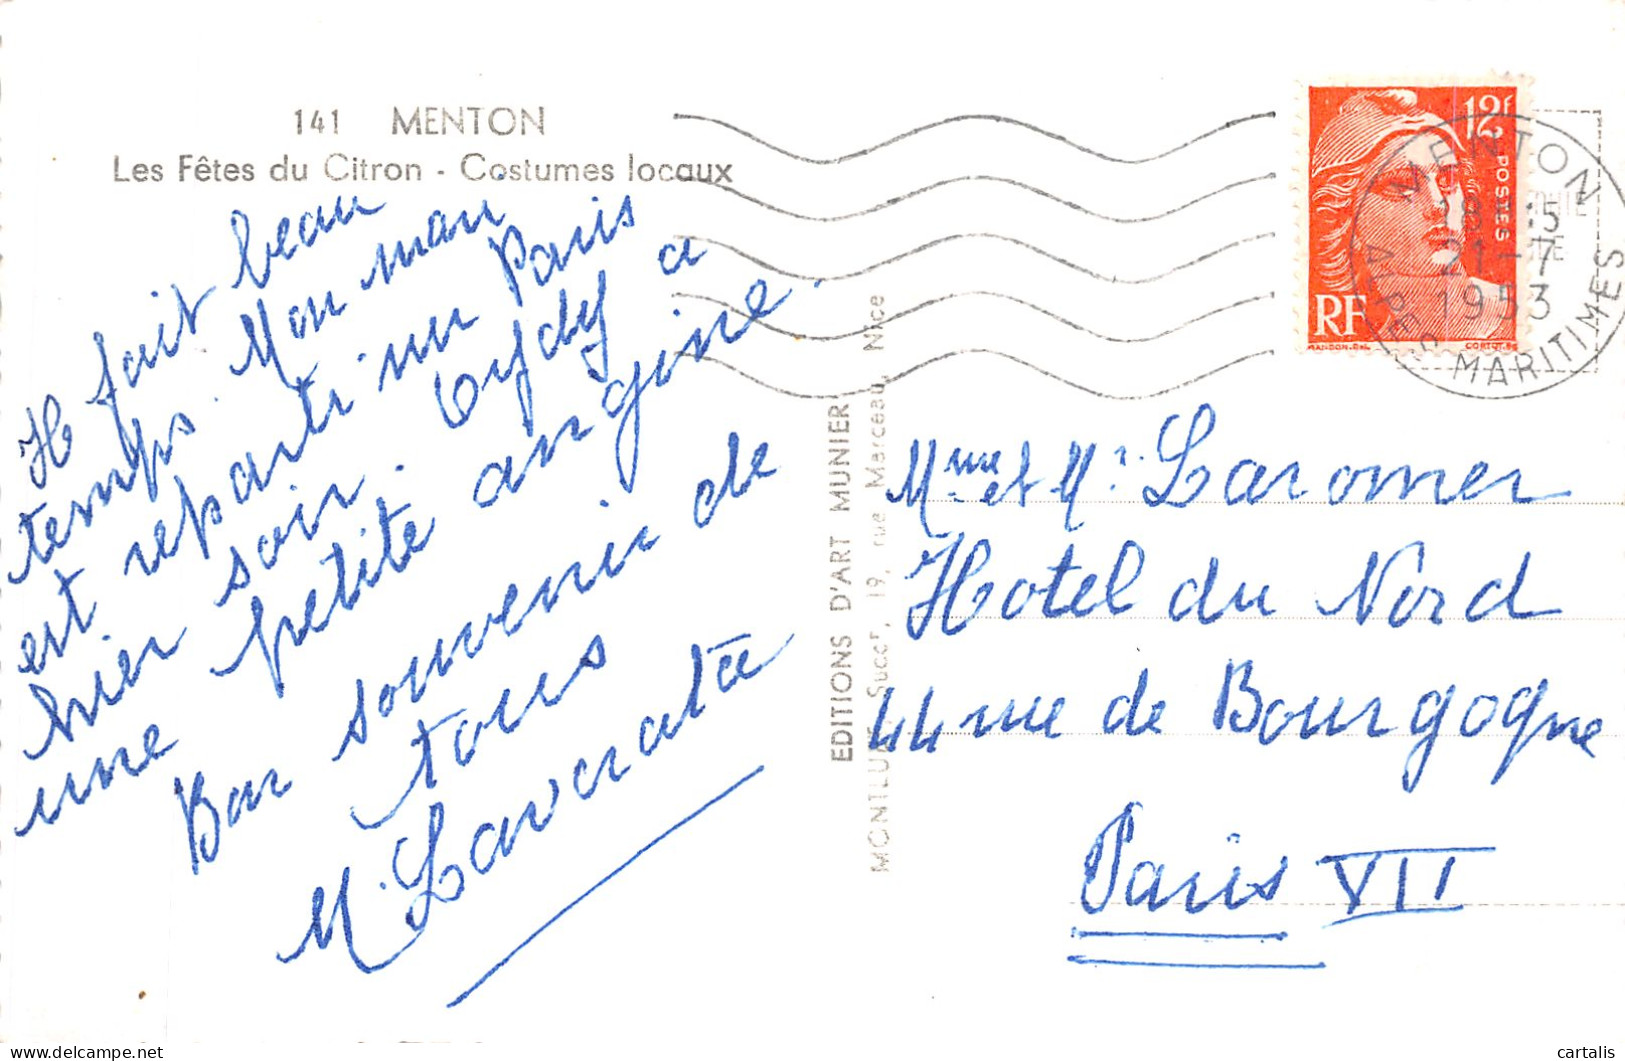 141 MENTON
Les Fêtes du Citron - Costumes locaux
Il fait beau
temps. Mon mari
est reparti sur Paris
hier soir. a
une petite angine.
Bon souvenir de
tous
M. Laveratte
EDITIONS D'ART MUNIER
MONTLUET Succr, 19, rue Marceau, Nice
12F
POSTES
RF
GANDON-DEL
CORTOT-SC
MENTON
18H15
21-7
1953
ALPES MARITIMES
Mme et Mr Laromer
Hotel du Nord
44 rue de Bourgogne
Paris VII
cartalis